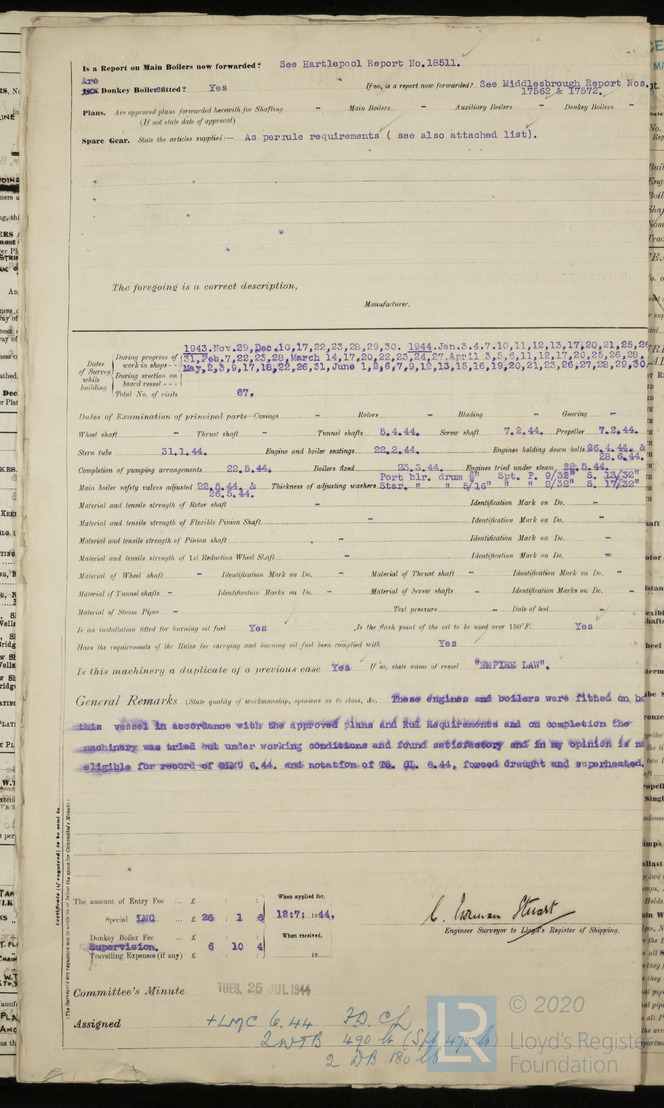 Is a Report on Main Boilers now forwarded? See Hartlepool Report No.18511.
Are
Donkey Boilers fitted? Yes If so, is a report now forwarded? See Middlesbrough Report Nos.
17562 & 17572.
Plans. Are approved plans forwarded herewith for Shafting - Main Boilers - Auxiliary Boilers - Donkey Boilers -
(If not state date of approval)
Spare Gear. State the articles supplied:— As per rule requirements ( see also attached list).
The foregoing is a correct description,
Manufacturer.
Dates of Survey while building
During progress of work in shops - - 1943.Nov.29,Dec.10,17,22,23,28,29,30. 1944.Jan.3.4.7.10,11,12,13,17,20,21,25,26
31,Feb.7,22,23,28,March 14,17,20,22,23,24,27.April 3,5,6,11,12,17,20,25,26,28
During erection on board vessel - - - May,2,3,9,17,18,22,26,31,June 1,2,6,7,9,12,13,15,16,19,20,21,23,26,27,28,29,30,
Total No. of visits 67.
Dates of Examination of principal parts—Casings - Rotors - Blading - Gearing -
Wheel shaft - Thrust shaft - Tunnel shafts 5.4.44. Screw shaft 7.2.44. Propeller 7.2.44.
Stern tube 31.1.44. Engine and boiler seatings 22.2.44. Engines holding down bolts 26.4.44. &
28.6.44.
Completion of pumping arrangements 22.5.44. Boilers fixed 23.3.44. Engines tried under steam 22.5.44.
Main boiler safety valves adjusted 22.5.44. & 26.5.44. Thickness of adjusting washers Port blr. drum Spt. P. 9/32" S. 13/32"
Star. " " 5/16" " " 9/32" S. 17/32"
Material and tensile strength of Rotor shaft - Identification Mark on Do. -
Material and tensile strength of Flexible Pinion Shaft - Identification Mark on Do. -
Material and tensile strength of Pinion shaft - Identification Mark on Do. -
Material and tensile strength of 1st Reduction Wheel Shaft - Identification Mark on Do. -
Material of Wheel shaft - Identification Mark on Do. - Material of Thrust shaft - Identification Mark on Do. -
Material of Tunnel shafts - Identification Marks on Do. - Material of Screw shafts - Identification Marks on Do. -
Material of Steam Pipes - Test pressure - Date of test -
Is an installation fitted for burning oil fuel Yes Is the flash point of the oil to be used over 150°F. Yes
Have the requirements of the Rules for carrying and burning oil fuel been complied with Yes
Is this machinery a duplicate of a previous case Yes If so, state name of vessel "EMPIRE LAW".
General Remarks (State quality of workmanship, opinions as to class, &c. These engines and boilers were fitted on bo
this vessel in accordance with the approved plans and Rul Requirements and on completion the
machinery was tried out under working conditions and found satisfactory and in my opinion is
eligible for record of 6.44. and notation of TS. CL. 6.44, forced draught and superheated.
Certificate (if required) to be sent to
(The Surveyors are requested not to write on or below the space for Committee's Minute.)
The amount of Entry Fee ... £
Special LMC. ... £ 26 : 1 6
Donkey Boiler Fee
Supervision. 6 10 4
Travelling Expenses (if any) £
When applied for, 12:7: 1944.
When received, 19
C. Stuart
Engineer Surveyor to Lloyd's Register of Shipping.
Committee's Minute TUES. 25 JUL 1944
Assigned +LMC 6.44 F.D. CL
2 WTB 490 lb (Spt 475 lb)
2 DB 180 lb
© 2020
Lloyd's Register
Foundation